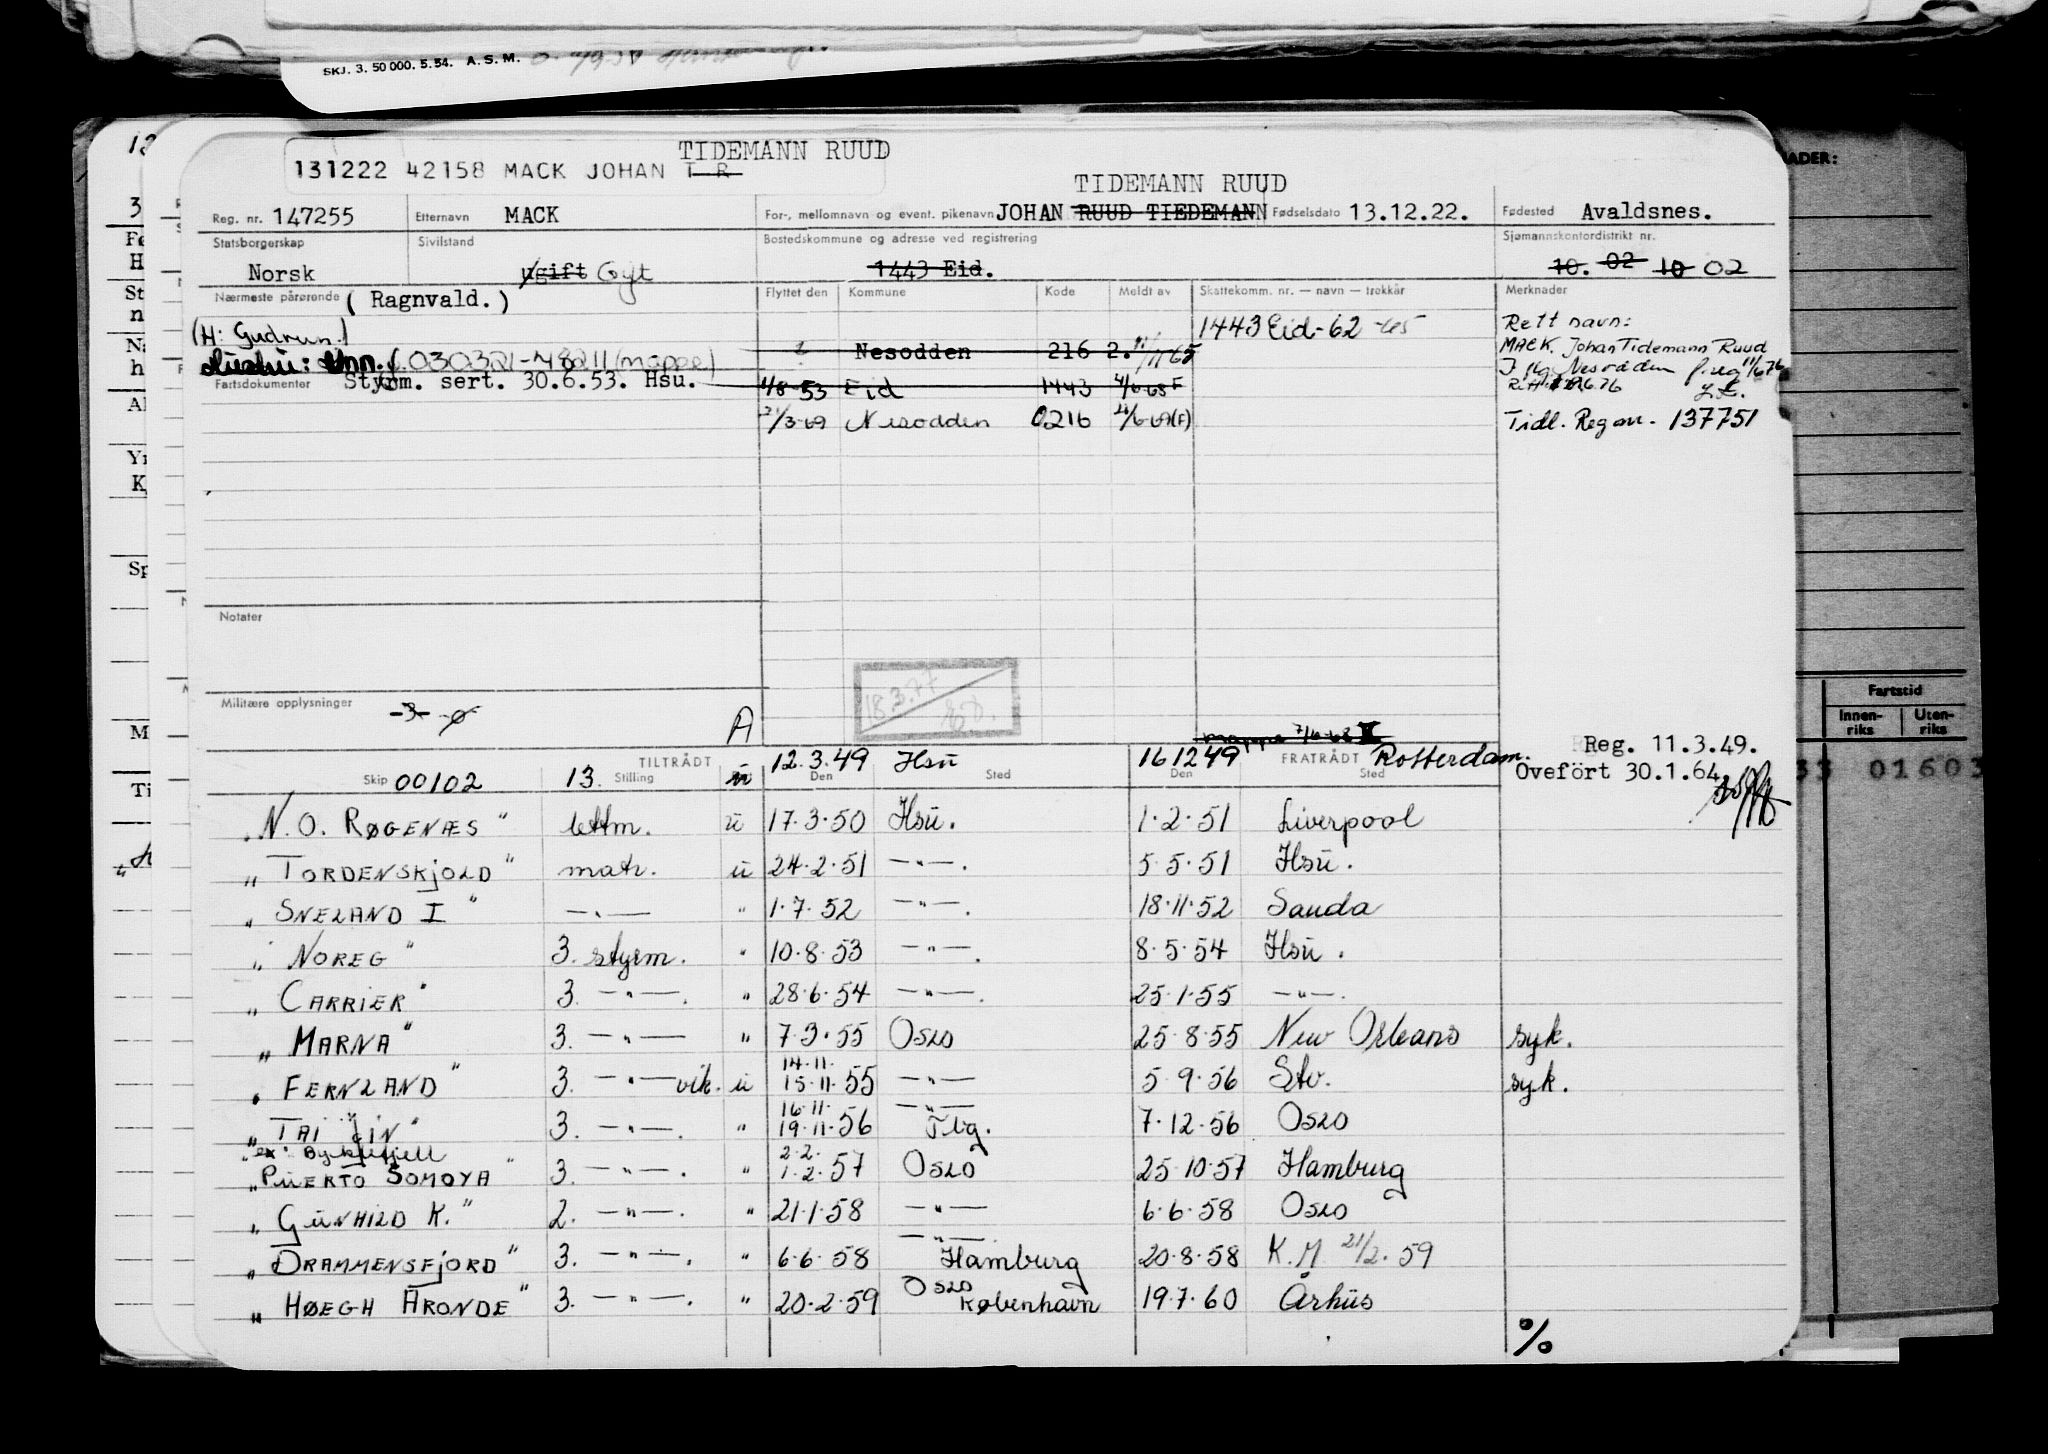 SKJ. 3. 50 000. 5. 54. A. S. M.
TIDEMANN RUUD
131222 42158 MACK JOHAN T R
TIDEMANN RUUD
Reg. nr. 147255 Etternavn MACK For-, mellomnavn og event. pikenavn JOHAN RUUD TIEDEMANN Fødselsdato 13.12.22. Fødested Avaldsnes.
Statsborgerskap Sivilstand Bostedskommune og adresse ved registrering Sjømannskontordistrikt nr.
Norsk Ugift Gift 1443 Eid. 10. 02 10 02
Nærmeste pårørende ( Ragnvald. ) Flyttet den Kommune Kode Meldt av Skattekomm. nr. — navn — trekkår Merknader
(H: Gudrun.) 1443 Eid-62 -65 Rett navn:
Nesodden 216 2. 11/11 65 MACK. Johan Tidemann Ruud
Hustru: Unn. (030321-48211 (mappe)
Fartsdokumenter Styrm. sert. 30.6.53. Hsu. 1/8-53 Eid 1443 4/6-68 F
21/3-69 Nesodden 0216 Tidl. Reg nr. 137751
Notater
18.3.77
Militære opplysninger -3- A
mappe 7/6-68
Reg. 11.3.49.
TILTRÅDT 12.3.49 Hsu 16 12 49 FRATRÅDT Rotterdam.
Skip 00102 13. Stilling Den Sted Den Sted Oveført 30.1.64
"N. O. RØGENÆS" lettm. u 17.3.50 Hsu. 1.2.51 Liverpool
" TORDENSKJOLD" matr. u 24.2.51 —"—. 5.5.51 Hsu.
" SNELAND I" —"— " 1.7.52 —"—. 18.11.52 Sauda
" NOREG" 3. styrm. " 10.8.53 —"—. 8.5.54 Hsu.
" CARRIER" 3. —"—. " 28.6.54 —"—. 25.1.55 —"—.
" MARNA" 3. —"— " 7.3.55 Oslo 25.8.55 New Orleans syk.
14.11.
" FERNLAND" 3. —"— vik. u 15.11.55 —"— 5.9.56 Stv. syk.
16.11. —"—
" TAI YIN" 3. —"—. " 19.11.56 Tbg. 7.12.56 Oslo
ex. Byklefjell 2.2.
" PUERTO SOMOYA" 3. —"—. " 1.2.57 Oslo 25.10.57 Hamburg
" GUNHILD K." 2. —"—. " 21.1.58 —"— 6.6.58 Oslo
—"—.
" DRAMMENSFJORD" 3. —"—. " 6.6.58 Hamburg 20.8.58 K.M 21/2.59
Oslo
" HØEGH ARONDE" 3. —"—. " 20.2.59 København 19.7.60 Århus
%
ADER:
Fartstid
Innen-riks Uten-riks
33 01603